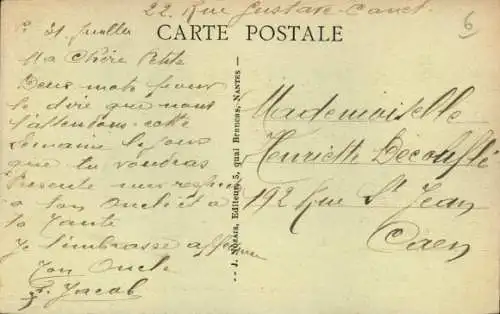 22 Rue Gustave Canet
CARTE POSTALE
6
31 Juillet
Ma Chère Petite
Deux mots pour
te dire que nous
t'attendons cette
semaine le jour
que tu voudras
Présente mes respects
à ton Oncle et à
ta Tante
Je t'embrasse
Ton Oncle
Jacob
J. Nozais, Editeur, 5, quai Brancas, NANTES
Mademoiselle
Henriette Découfflé
192 Rue St Jean
Caen